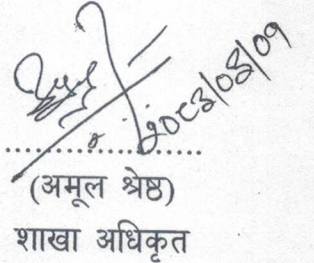 २०८३/०४/०१
(अमूल श्रेष्ठ)
शाखा अधिकृत